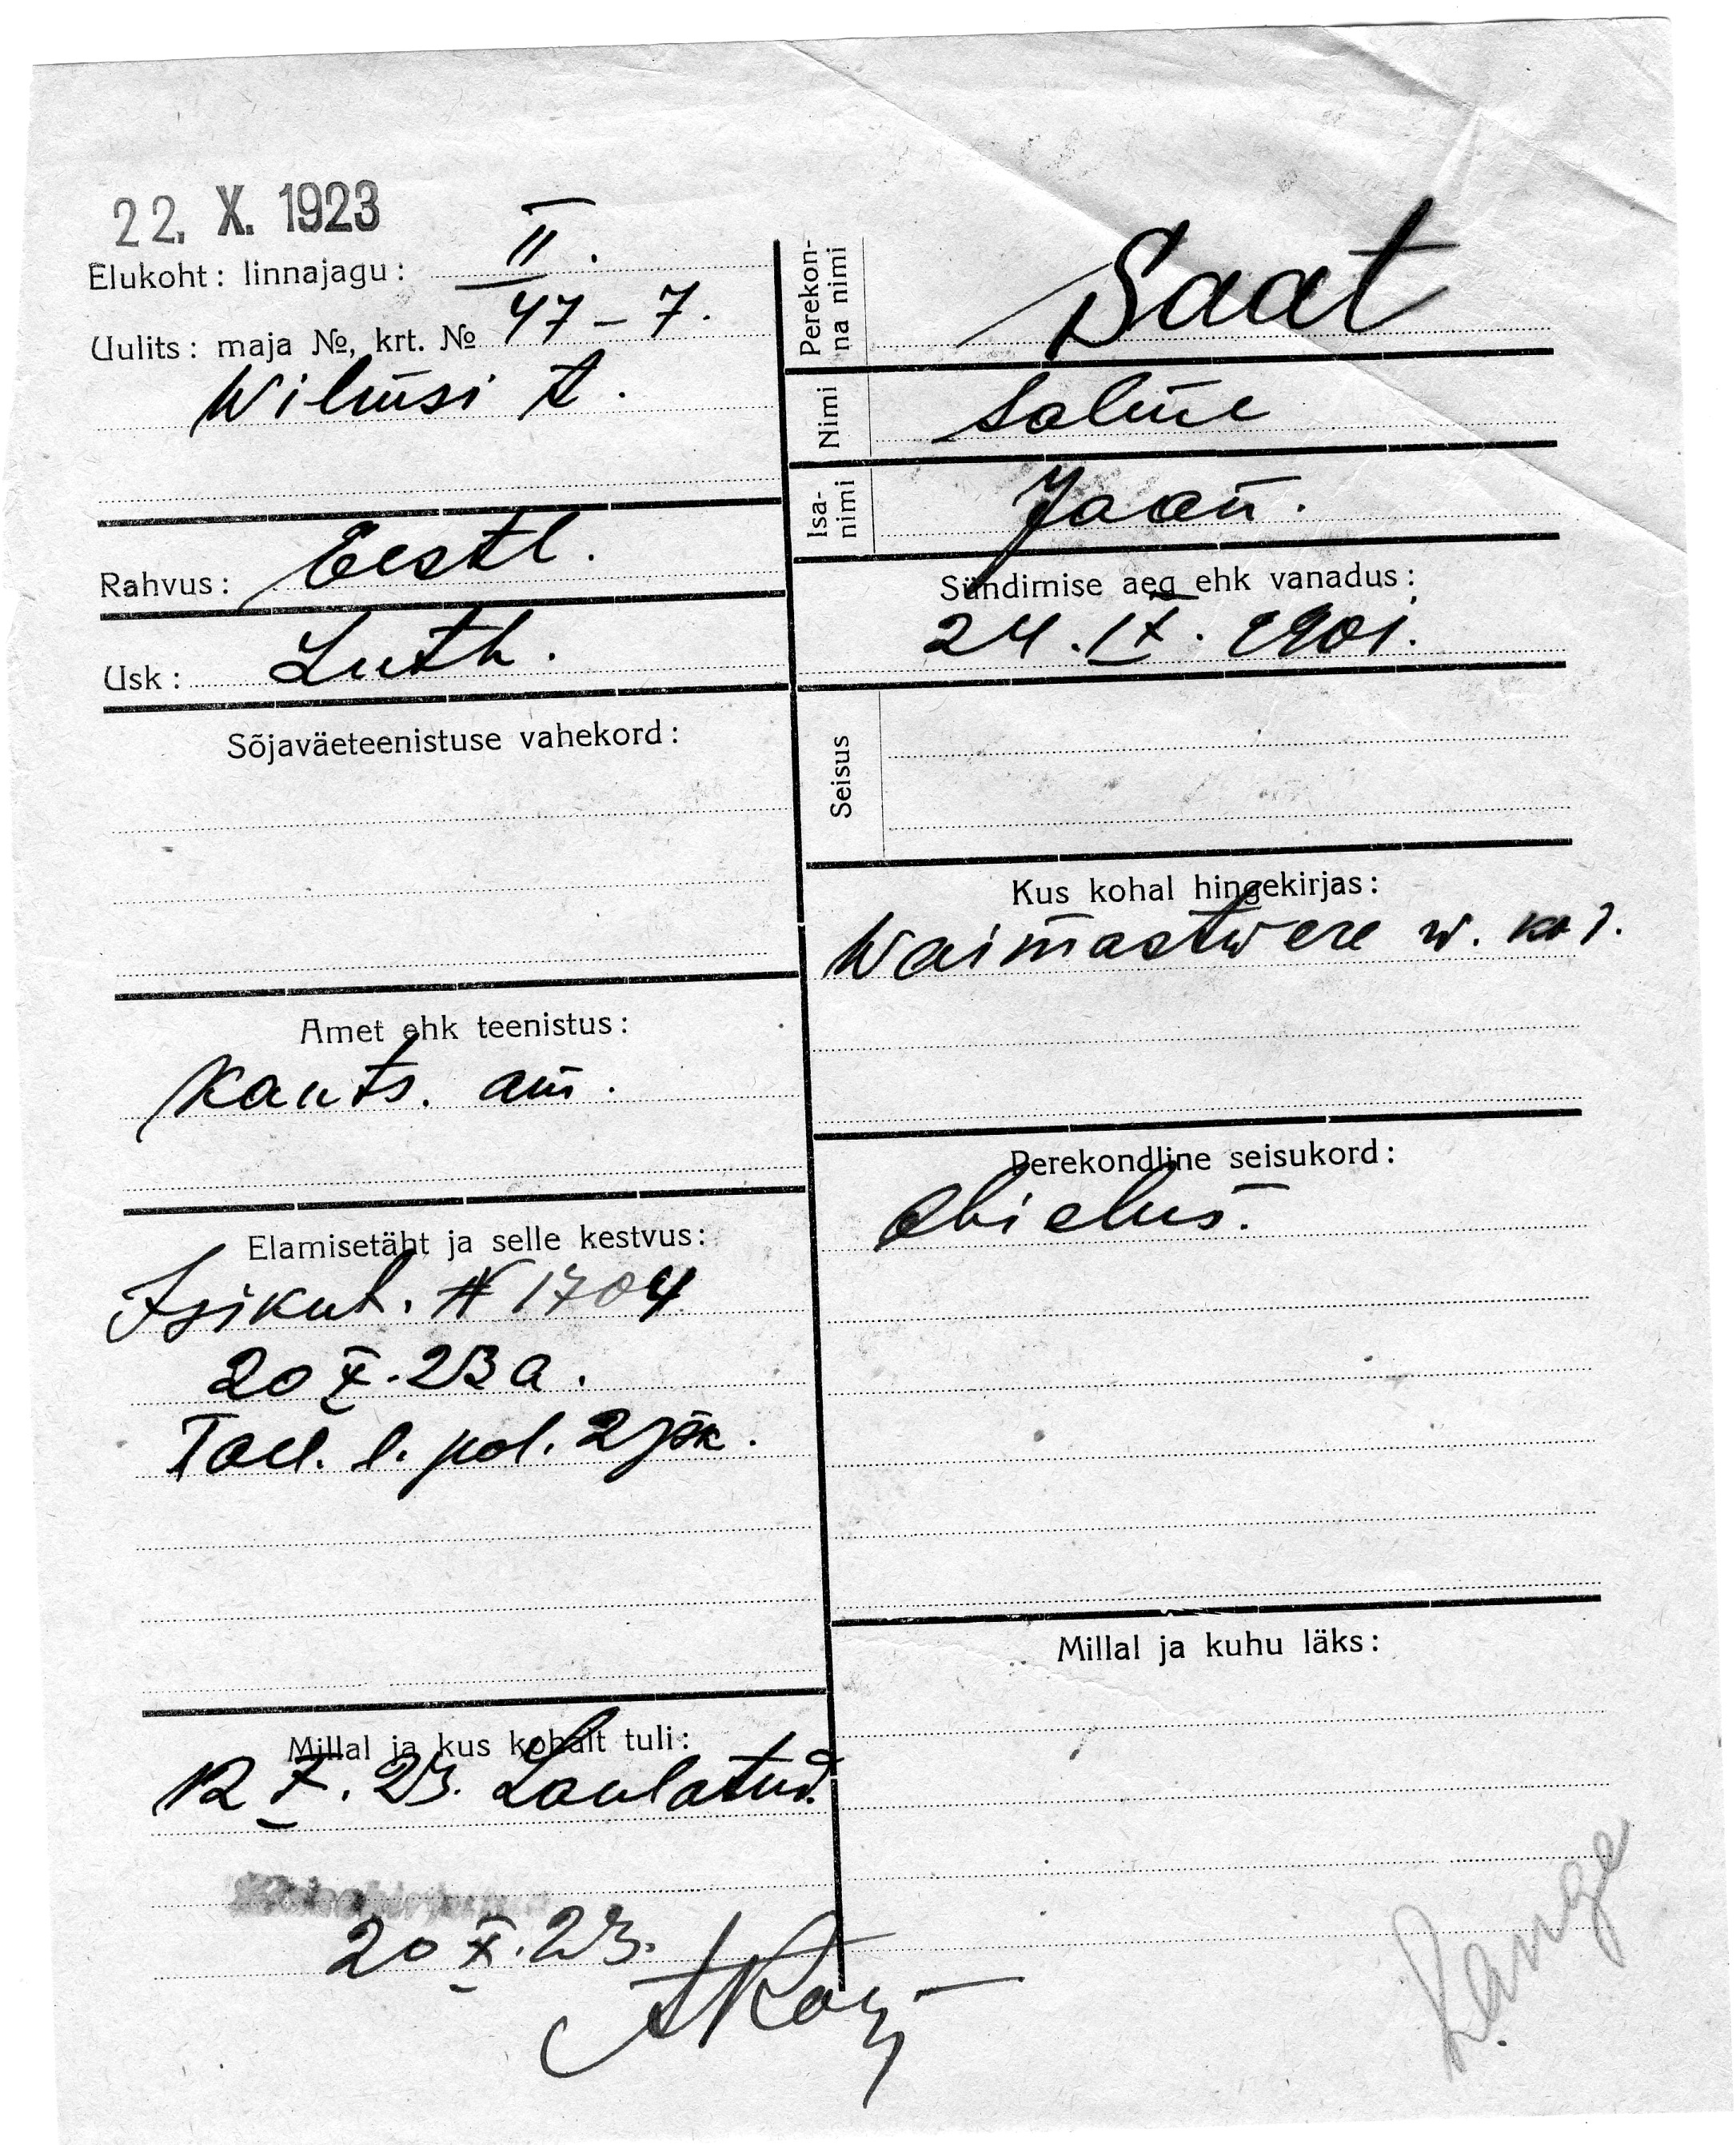 22. X. 1923
Elukoht: linnajagu: II.
Uulits: maja №, krt. № 47 – 7.
Wilmsi t.
Rahvus: Eestl.
Usk: Luth.
Sõjaväeteenistuse vahekord:
Amet ehk teenistus:
Kants. am.
Elamisetäht ja selle kestvus:
Isikut. № 1704
20 X. 23 a.
Tall. l. pol. 2 jsk.
Millal ja kus kohalt tuli:
12 X. 23. Laulatud.
20 X. 23.
Perekonna nimi
Saat
Nimi
Salme
Isanimi
Jaan.
Sündimise aeg ehk vanadus:
24. IX. 1901.
Seisus
Kus kohal hingekirjas:
Waimastwere w. kod.
Perekondline seisukord:
Abielus.
Millal ja kuhu läks: